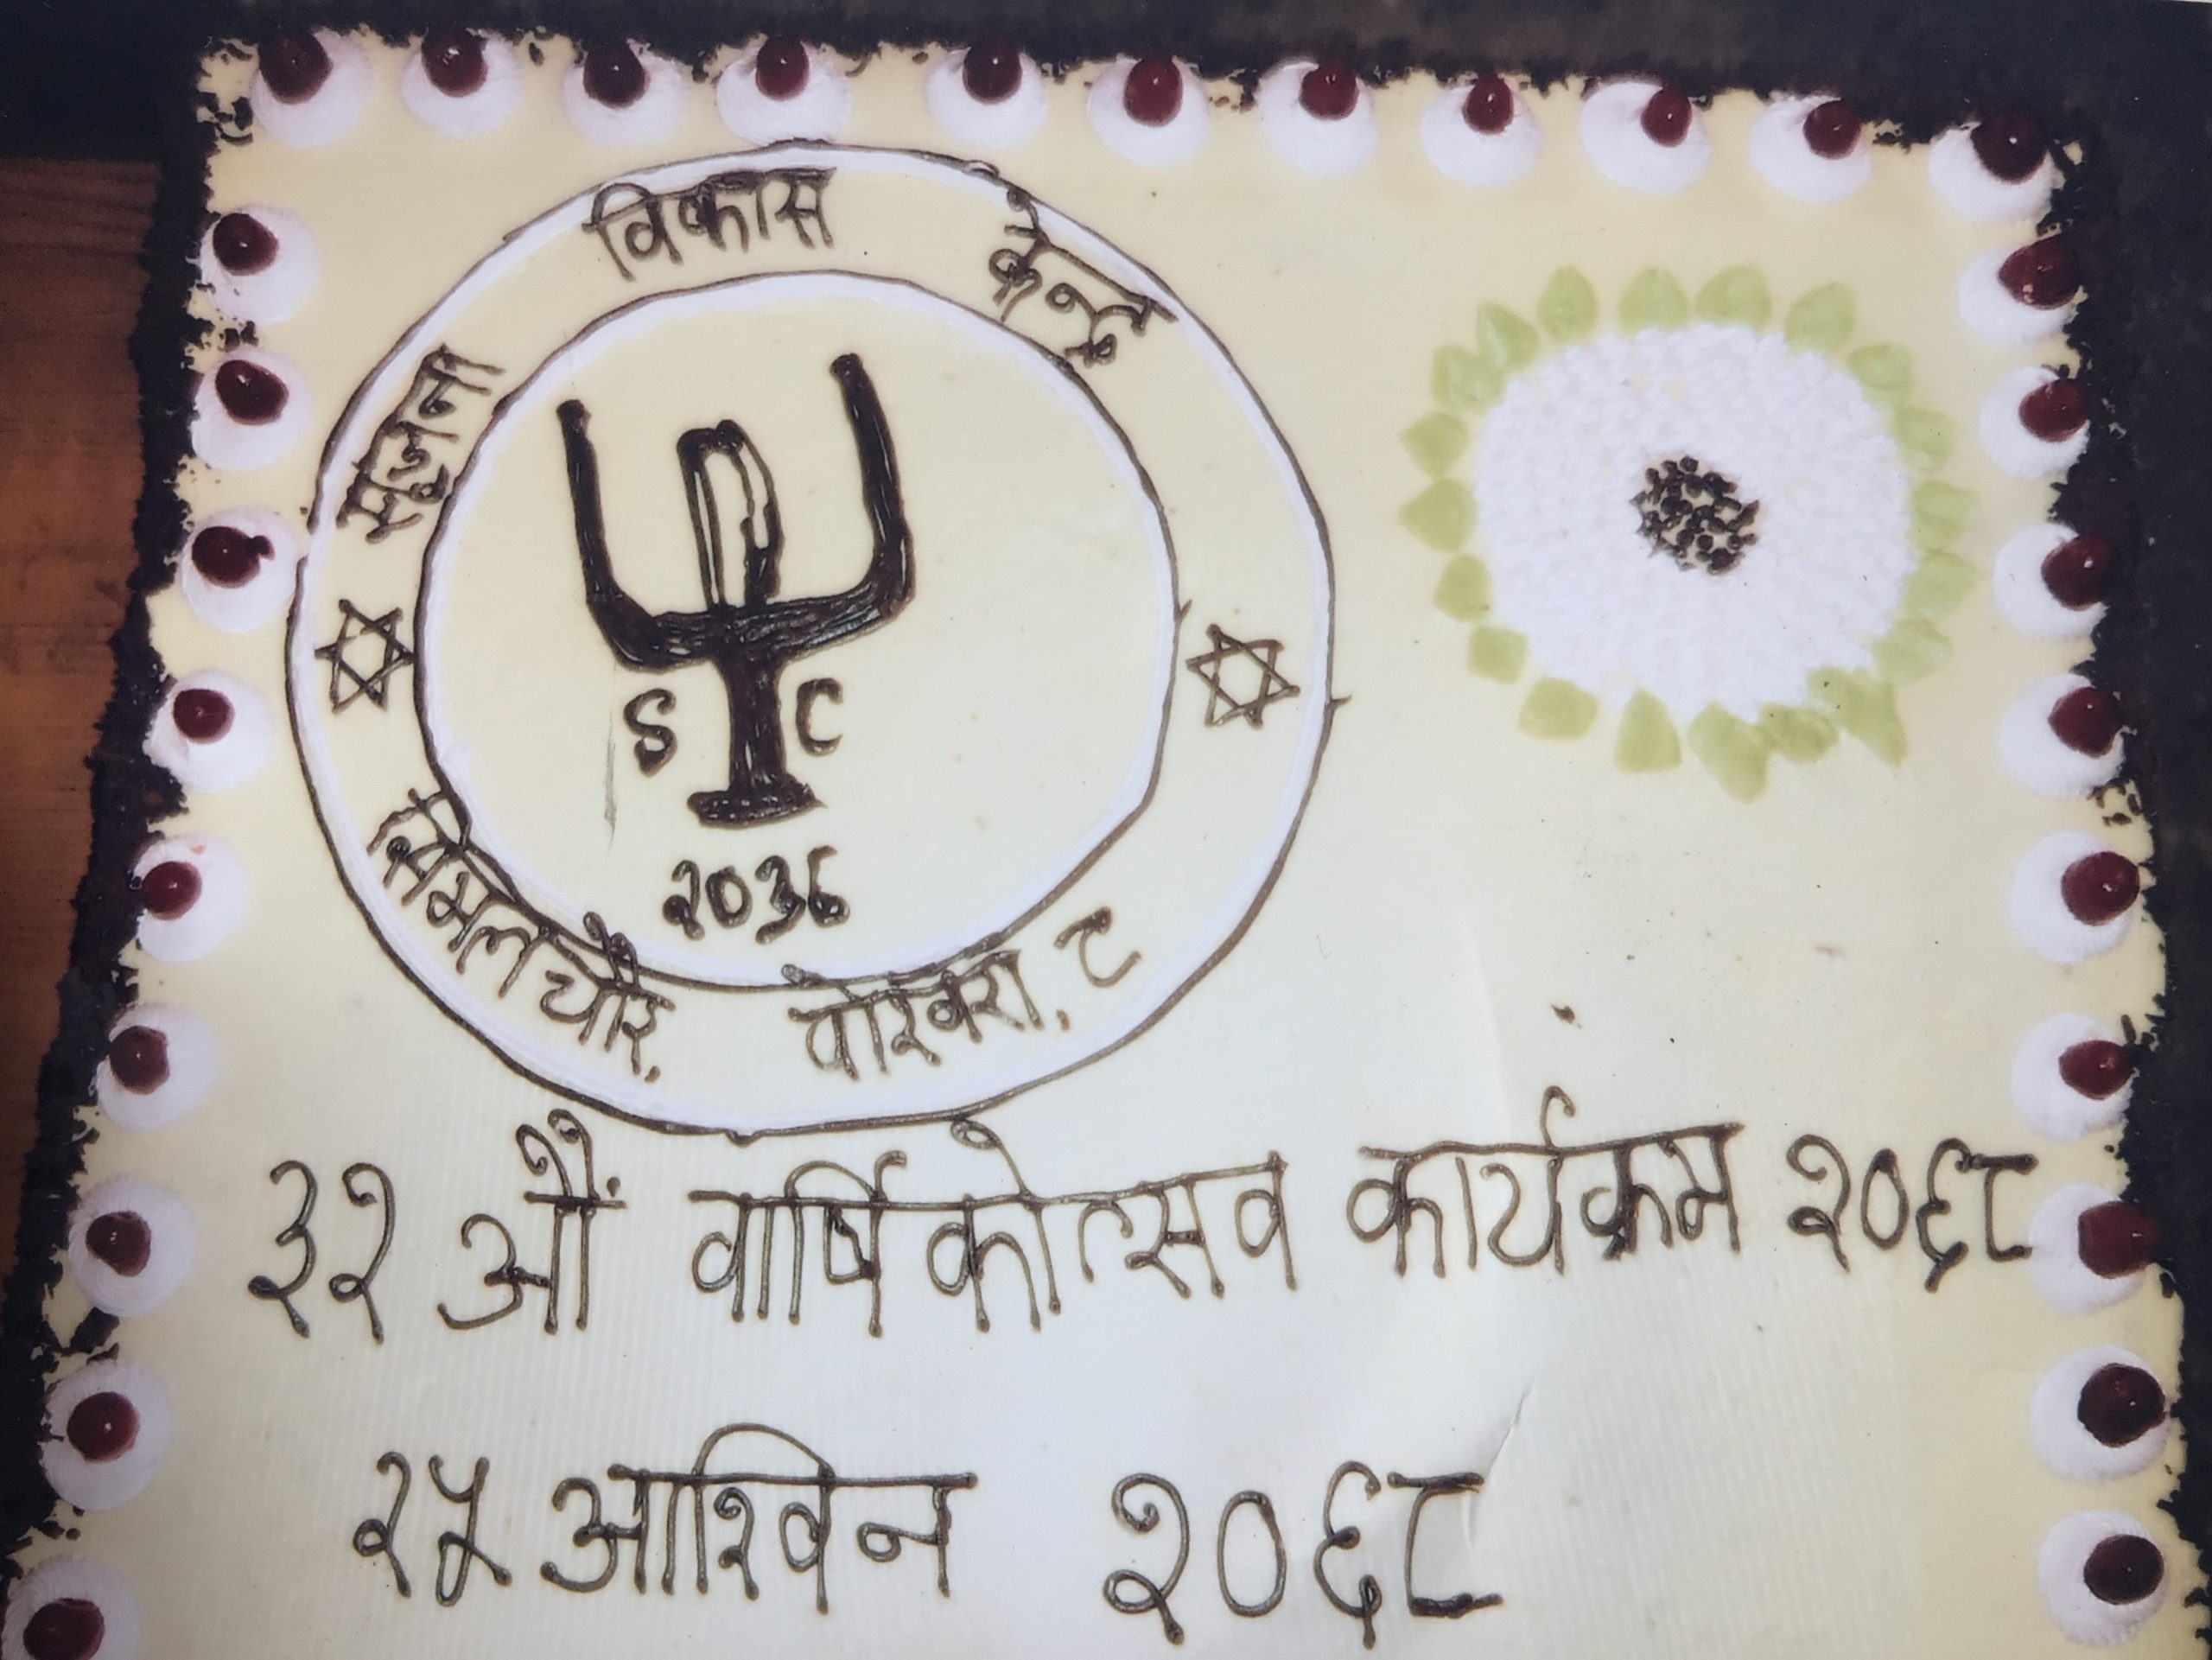 सृजना विकास केन्द्र
S C
२०३६
सिमलचौर, पोखरा. ८
३२ औं वार्षिकोत्सव कार्यक्रम २०६८
२५ आश्विन २०६८